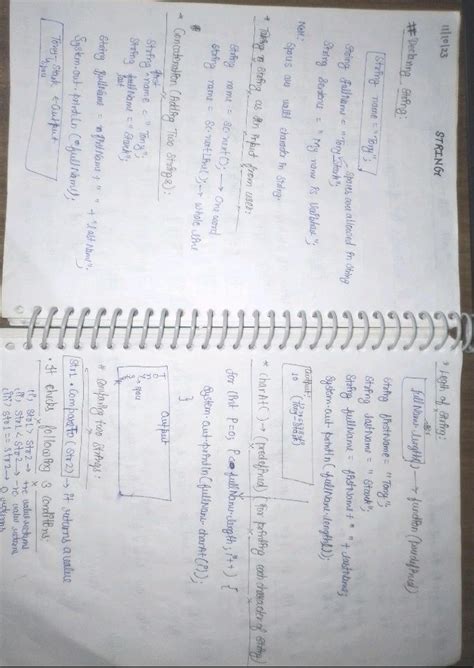 11/10/23
STRING
## Declaring String:
String name = "Tony";
String fullName = "Tony Stark";
spaces are allowed in string
String sentence = "My name is Vaibhav";
Note:
Spaces are valid character in String
* Taking a string as an input from user:
String name = sc.next(); → One word
String name = sc.nextLine(); → whole line
* Concatenation (Adding Two Strings):
String first name = "Tony";
String last name = "Stark";
String fullName = firstName + " " + "lastName";
System.out.println(fullName);
Tony Stark → Output
space
* Length of String:
fullName.length() → function (predefined)
String firstname = "Tony";
String lastname = "Stark";
String fullname = firstname + " " + lastname;
System.out.println(fullName.length());
Output
10
* charAt() → (predefined) (for printing each character of string)
for (int i=0; i<fullName.length; i++) {
System.out.println(fullName.charAt(i));
}
Output
T
O
N
Y
→ space
# Comparing two Strings:
Str1.CompareTo(Str2) → It returns a value
• It checks following 3 conditions:
(i) Str1 > Str2 → +ve value returns
(ii) Str1 < Str2 → -ve value returns
(iii) Str1 == Str2 → 0 returns